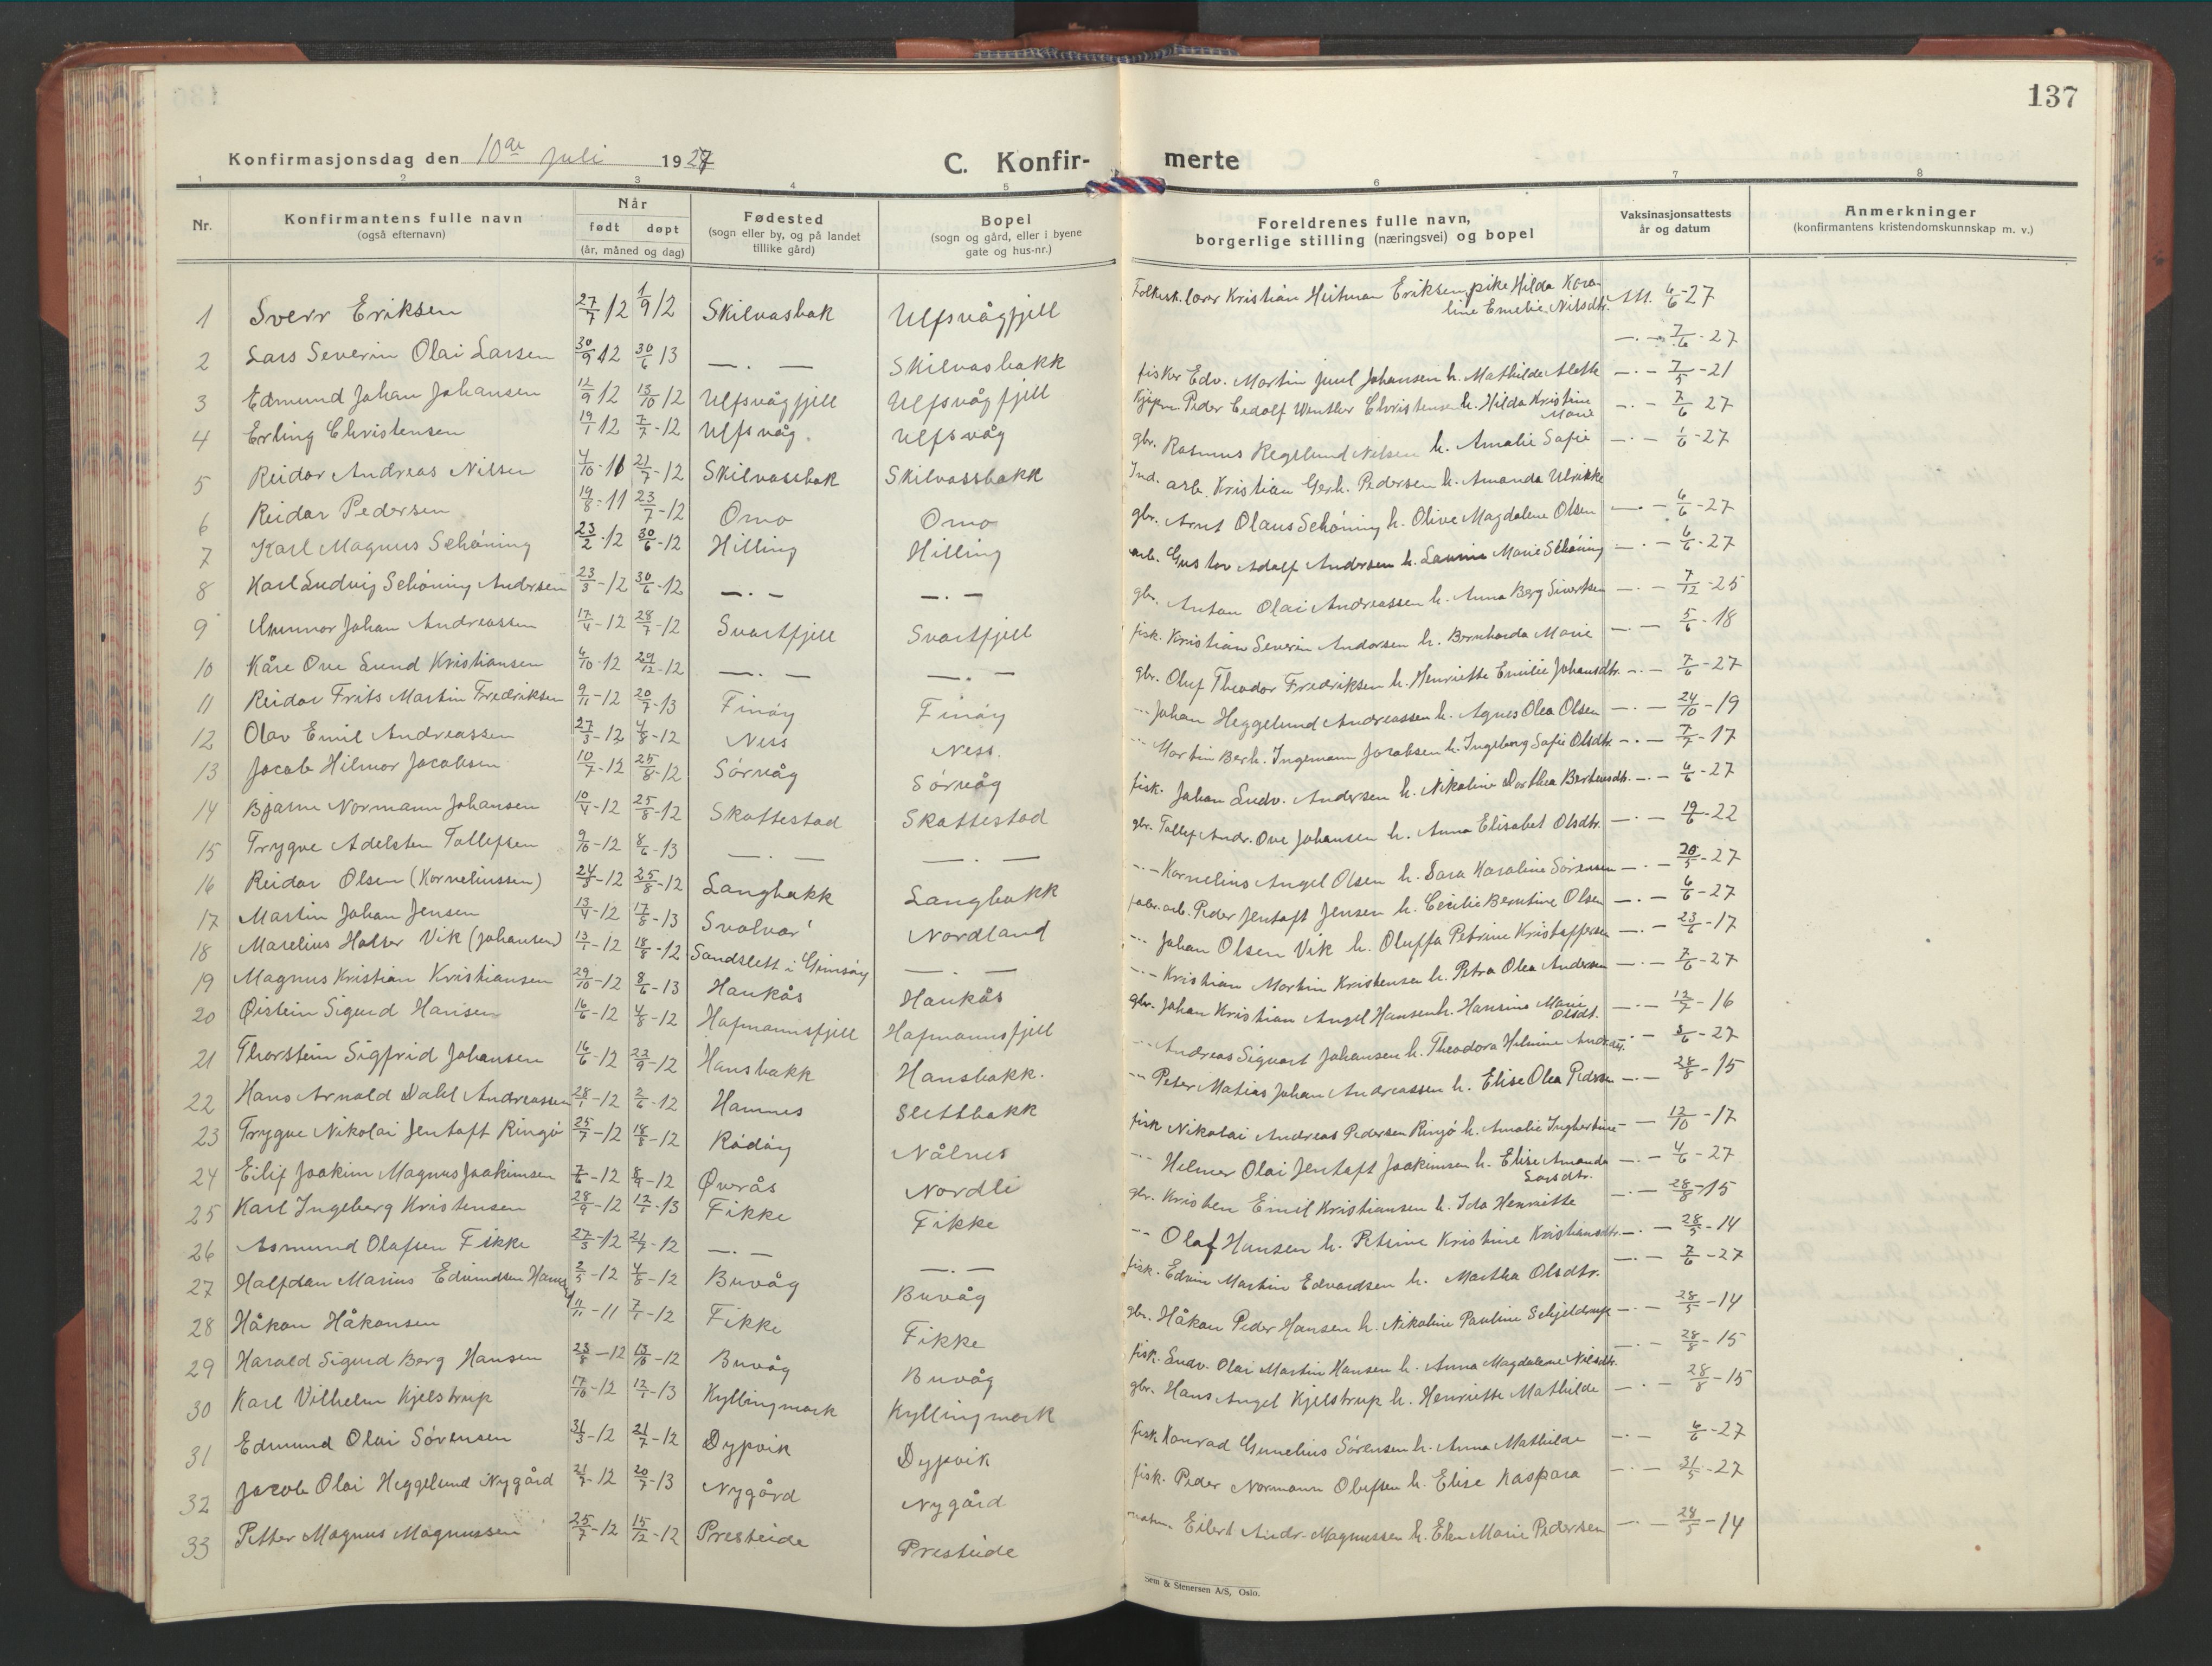 137
Konfirmasjonsdag den 10de juli 1927
C. Konfir- merte
1 2 3 4 5 6 7 8
Nr.
Konfirmantens fulle navn
(også efternavn)
Når
født døpt
(år, måned og dag)
Fødested
(sogn eller by, og på landet
tillike gård)
Bopel
(sogn og gård, eller i byene
gate og hus-nr.)
Foreldrenes fulle navn,
borgerlige stilling (næringsvei) og bopel
Vaksinasjonsattests
år og datum
Anmerkninger
(konfirmantens kristendomskunnskap m. v.)
1 Sverr Eriksen 27/7 12 1/9 12 Skilvasbak Ulfsvågfjell Folkesk.lærer Kristian Heitman Eriksen, pike Hilda Karo
line Emelie Nilsdtr. Att. 6/6-27
2 Lars Severin Olai Larsen 30/9 12 30/6 13 —.— Skilvasbakk —.— 7/6-27
3 Edmund Johan Johansen 12/9 12 13/10 12 Ulfsvågfjell Ulfsvågfjell fisker Edv. Martin Juul Johansen h. Mathilde Alette —.— 7/5-21
4 Erling Christensen 19/1 12 7/7-12 Ulfsvåg. Ulfsvåg Kjøpm. Peder Cedolf Winther Christensen h. Hilda Kristine
Marie —.— 7/6 27
5 Reidar Andreas Nilsen 4/10-11 21/7-12 Skilvassbak Skilvassbakk gbr. Rasmus Hegelund Nilsen h. Amalie Sofie —.— 1/6-27
6 Reidar Pedersen 19/8-11 23/7-12 Omo Omo Ind. arb. Kristian Gerh. Pedersen h. Amanda Ulrikke
7 Karl Magnus Schöning 23/2-12 30/6-12 Hilling Hilling gbr. Arnt Olaus Schöning h. Olive Magdalene Olsen —.— 6/6-27
8 Karl Ludvig Schöning Andersen 23/3-12 30/6-12 —.— —.— arb. Gustav Adolf Andersen h. Laurine Marie Schöning —.— 6/6-27
9 Gunnar Johan Andreassen 17/4-12 28/7-12 Svartfjell Svartfjell gbr. Antan Olai Andreassen h. Anna Berg Sivertsen —.— 7/12-25
10 Kåre Ove Lund Kristiansen 6/10-12 29/12-12 —.— —.— fisk. Kristian Severin Andersen h. Bernharda Marie —.— 5/6-18
11 Reidar Frits Martin Fredriksen 9/11-12 20/7-13 Finöy Finöy gbr. Oluf Theodor Fredriksen h. Henriette Emilie Johansdtr. —.— 7/6-27
12 Olav Emil Andreassen 27/3-12 4/8-12 Ness Ness. -- Johan Heggelund Andreassen h. Agnes Olea Olsen —.— 24/10-19
13 Jacob Hilmar Jacobsen 10/7-12 25/8-12 Sörvåg Sörvåg -- Martin Berh. Ingemann Jacobsen h. Ingeborg Sofie Olsdtr. —.— 7/7-17
14 Bjarne Normann Johansen 10/4-12 25/8-12 Skottestad Skottestad fisk. Johan Ludv. Andersen h. Nikoline Dorthea Bertensdtr. —.— 6/6-27
15 Trygve Adelsten Tollefsen 9/10-12 8/6-13 —.— —.— gbr. Tollef Andr. Ove Johansen h. Anna Elisabet Olsdtr. —.— 19/6-22
16 Reidar Olsen (Korneliussen) 24/3-12 25/8-12 Langbakk Langbakk -- Kornelius Angel Olsen h. Sara Karoline Sörensen —.— 20/5-27
17 Martin Johan Jensen 13/4-12 17/8-13 Svolvær Nordland fabr. arb. Peder Jentoft Jensen h. Cecilie Berntine Olsen —.— 6/6-27
18 Marelius Halser Vik (Johansen) 13/1-12 18/8-12 Sandslett i Gimsöy —.— -- Johan Olsen Vik h. Oluffa Petrine Kristoffersen —.— 23/6-17
19 Magnus Kristian Kristiansen 29/10-12 8/6-13 Haukås Haukås -- Kristian Martin Kristensen h. Petra Olea Andersen —.— 7/6-27
20 Øistein Sigurd Hansen 16/6-12 4/8-12 Hafmannsfjell Hafmannsfjell gbr. Johan Kristian Angel Hansen h. Hansine Marie
Olsdt. —.— 12/7-16
21 Thorstein Sigfrid Johansen 16/6-12 22/9-12 Hansbakk Hansbakk. -- Andreas Sigvart Johansen h. Theodora Helmine —.— 3/6-27
22 Hans Arnold Dahl Andreassen 28/1-12 2/6-12 Hamnes Slettbakk -- Peter Matias Johan Andreassen h. Elise Olea Peders —.— 28/8-15
23 Trygve Nikolai Jentoft Ringö 25/7-12 18/8-12 Rödöy Nålnes fisk Nikolai Andreas Pedersen Ringö h. Amalie Ingbertine — 12/10-17
24 Eilif Joakim Magnus Joakimsen 7/6-12 8/9-12 Øvrås Nordli -- Helmer Olai Jentoft Joakimsen h. Elise Amanda
Larsdtr. —.— 4/6-27
25 Karl Ingeberg Kristensen 28/9-12 12/1-13 Fikke Fikke gbr. Kristen Emil Kristiansen h. Ida Henriette —.— 28/8-15
26 Asmund Olafsen Fikke 27/3-12 21/7-12 —.— —.— -- Olaf Hansen h. Petrine Kristine Kristiansdtr. —.— 28/5-14
27 Halfdan Marius Edvindsen 2/5-12 4/8-12 Buvåg Buvåg fisk. Edvin Martin Edvardsen h. Martha Olsdtr. —.— 7/6-27
28 Håkon Håkonsen 11/11-11 7/1-12 Fikke Fikke gbr. Håkon Peder Hansen h. Nikoline Pauline Schjeldrup —.— 28/5-14
29 Harald Sigurd Berg Hansen 23/8-12 13/10-12 Buvåg Buvåg fisk. Ludv. Olai Martin Hansen h. Anna Magdalene Nilsdtr. —.— 28/8-15
30 Karl Vilhelm Kjelstrup 17/10-12 12/1-13 Kyllingmark Kyllingmark gbr. Hans Angel Kjelstrup h. Henriette Mathilde —.— 28/8-15
31 Edmund Olai Sörensen 31/3-12 21/7-12 Dypvik Dypvik fisk Konrad Gunelius Sörensen h. Anna Mathilde —.— 6/6-27
32 Jacob Olai Heggelund Nygård 21/7-12 20/7-13 Nygård Nygård fisk. Peder Normann Olufsen h. Elise Kaspara —.— 31/5-27
33 Petter Magnus Magnussen 25/7-12 15/12-12 Presteide Presteide Eilert Andr. Magnussen h. Elen Marie Pedersen —.— 28/5-14
Sem & Stenersen A/S, Oslo.